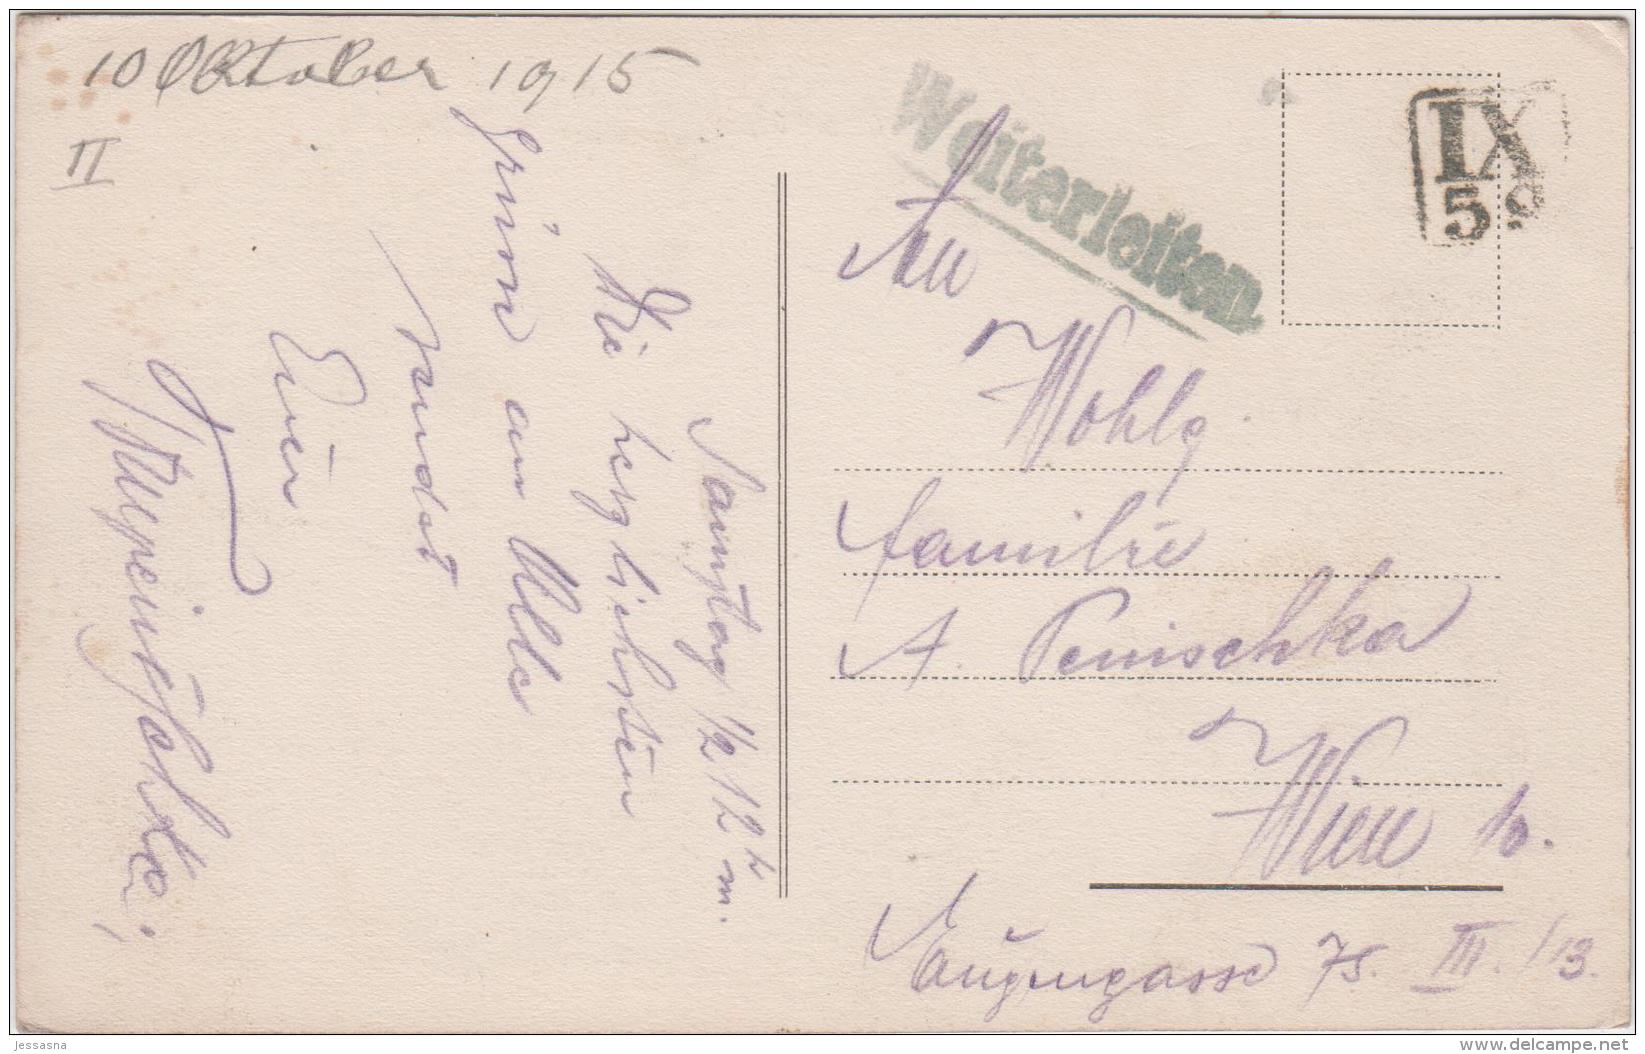 10 Oktober 1915
II
Samstag 1/2 12 h m.
Die herzlichsten
Grüsse an Alle
sendet
Euer
Weiterleiten
IX
5 9
An
Wohlg.
Familie
A. Penischka
Wien 10.
Eugengasse 75. III. /13.
jessasna
www.delcampe.net